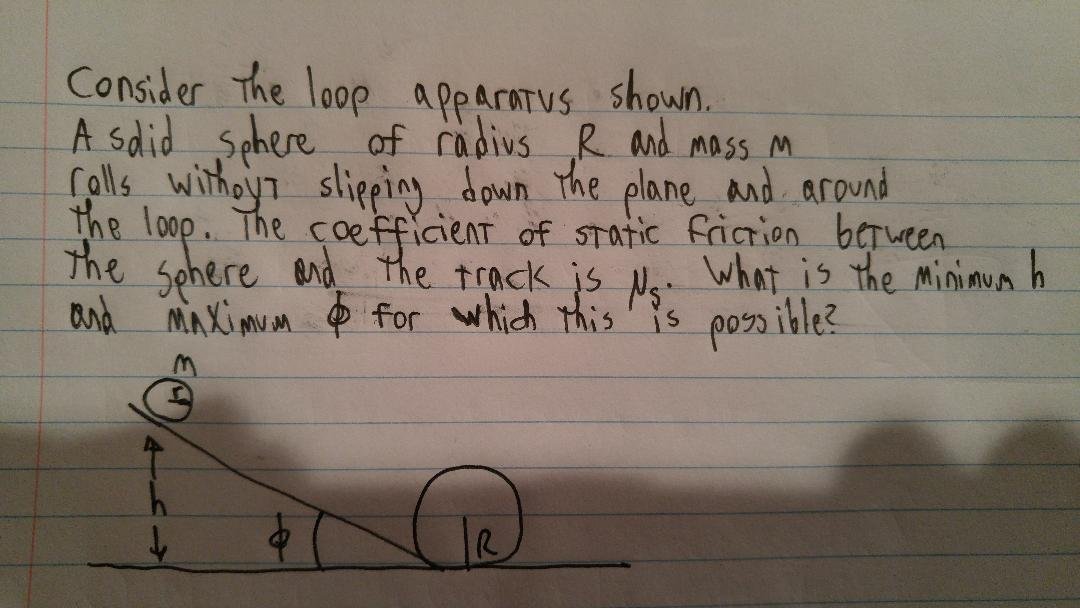 Consider the loop apparatus shown.
A solid sphere of radius R and mass m
rolls without slipping down the plane and around
the loop. The coefficient of static friction between
the sphere and the track is μs. What is the minimum h
and maximum ϕ for which this is possible?
m
r
h
ϕ
R